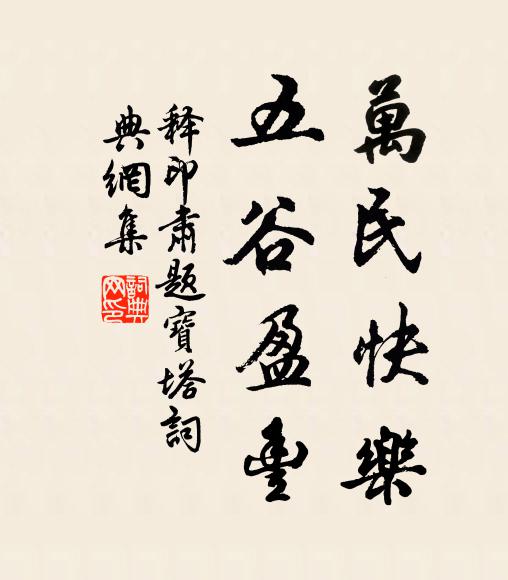 萬民快樂
五谷盈豐
释印肅題寶塔詞
典網集
詞典网印